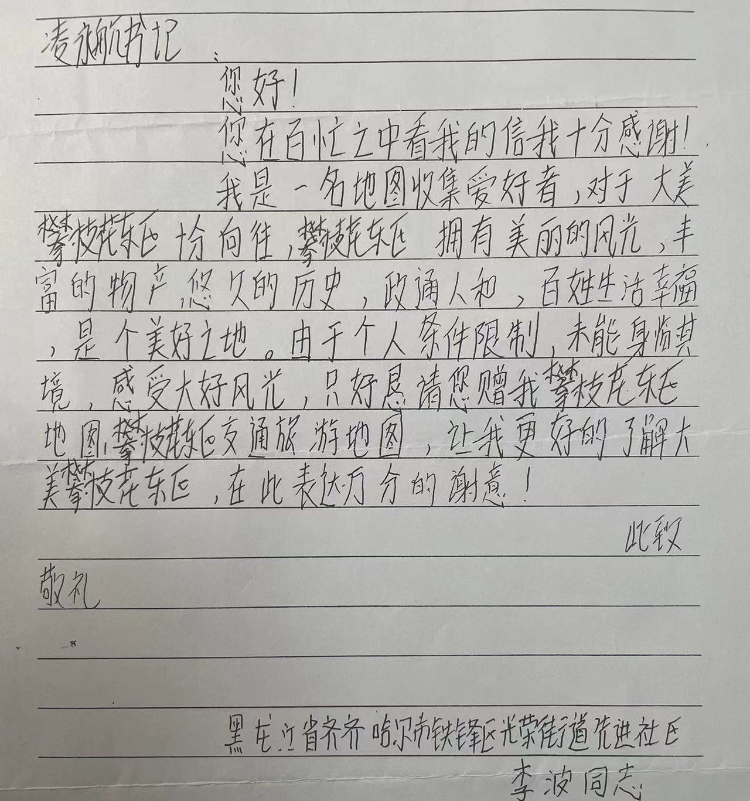 凌永航书记：
您好！
您在百忙之中看我的信我十分感谢！
我是一名地图收集爱好者，对于大美
攀枝花东区十分向往，攀枝花东区拥有美丽的风光，丰
富的物产，悠久的历史，政通人和，百姓生活幸福
，是个美好之地。由于个人条件限制，未能身临其
境，感受大好风光，只好恳请您赠我攀枝花东区
地图，攀枝花东区交通旅游地图，让我更好的了解大
美攀枝花东区，在此表达万分的谢意！
此致
敬礼
黑龙江省齐齐哈尔市铁锋区光荣街道先进社区
李波同志